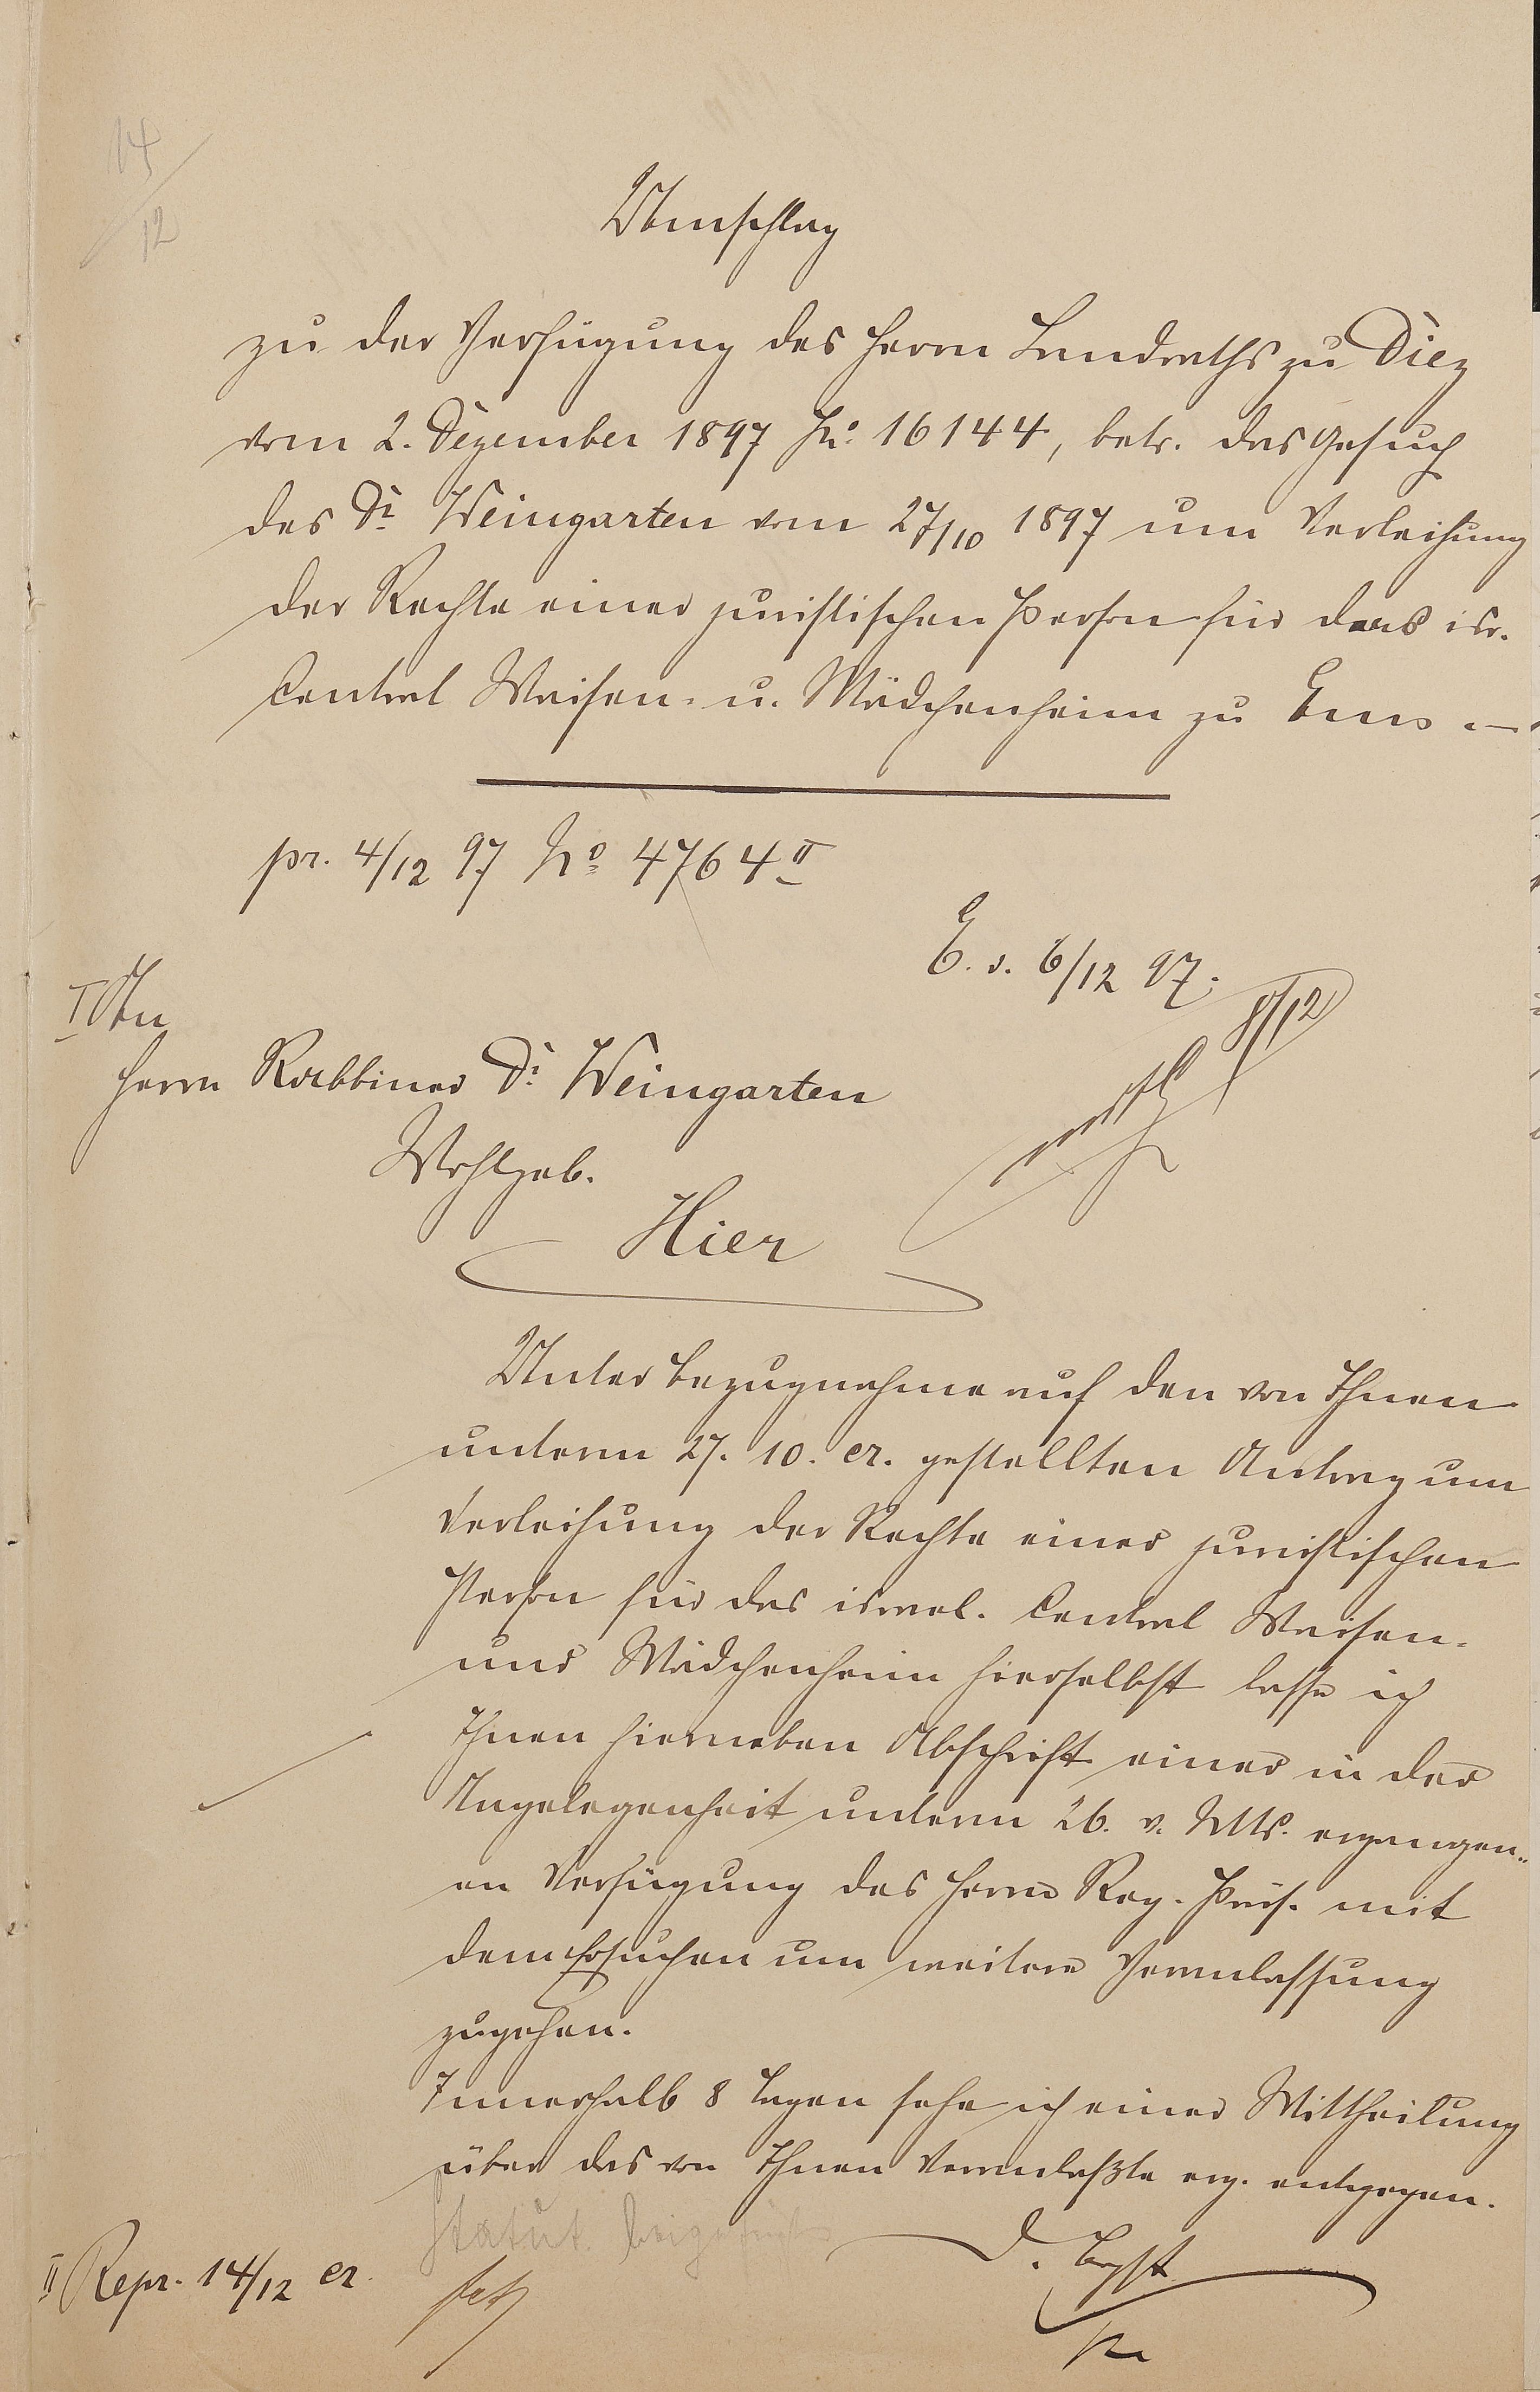 14/12
Umschlag
zu der Verfügung des Herrn Landraths zu Diez
vom 2. Dezember 1897 No. 16144, betr. das Gesuch
des Dr. Weingarten vom 27/10 1897 um Verleihung
der Rechte einer juristischen Person für das isr.
Central Waisen- u. Mädchenheim zu Ems.
pr. 4/12 97 No 4764 II
E. d. 6/12 97.
8/12
I An
Herrn Rabbiner Dr. Weingarten
Wohlgeb.
Hier
Unter Bezugnahme auf den von Ihnen
unterm 27. 10. cr. gestellten Antrag um
Verleihung der Rechte einer juristischen
Person für das israel. Central Waisen-
und Mädchenheim hierselbst lasse ich
Ihnen hierneben Abschrift einer in der
Angelegenheit unterm 26. v. Mts. ergangen-
en Verfügung des Herrn Reg. Präs. mit
dem Ersuchen um weitere Veranlassung
zugehen.
Innerhalb 8 Tagen sehe ich einer Mittheilung
über das von Ihnen Veranlaßte erg. entgegen.
Statut beigefügt
D. Bgst
II Repr. 14/12 cr.